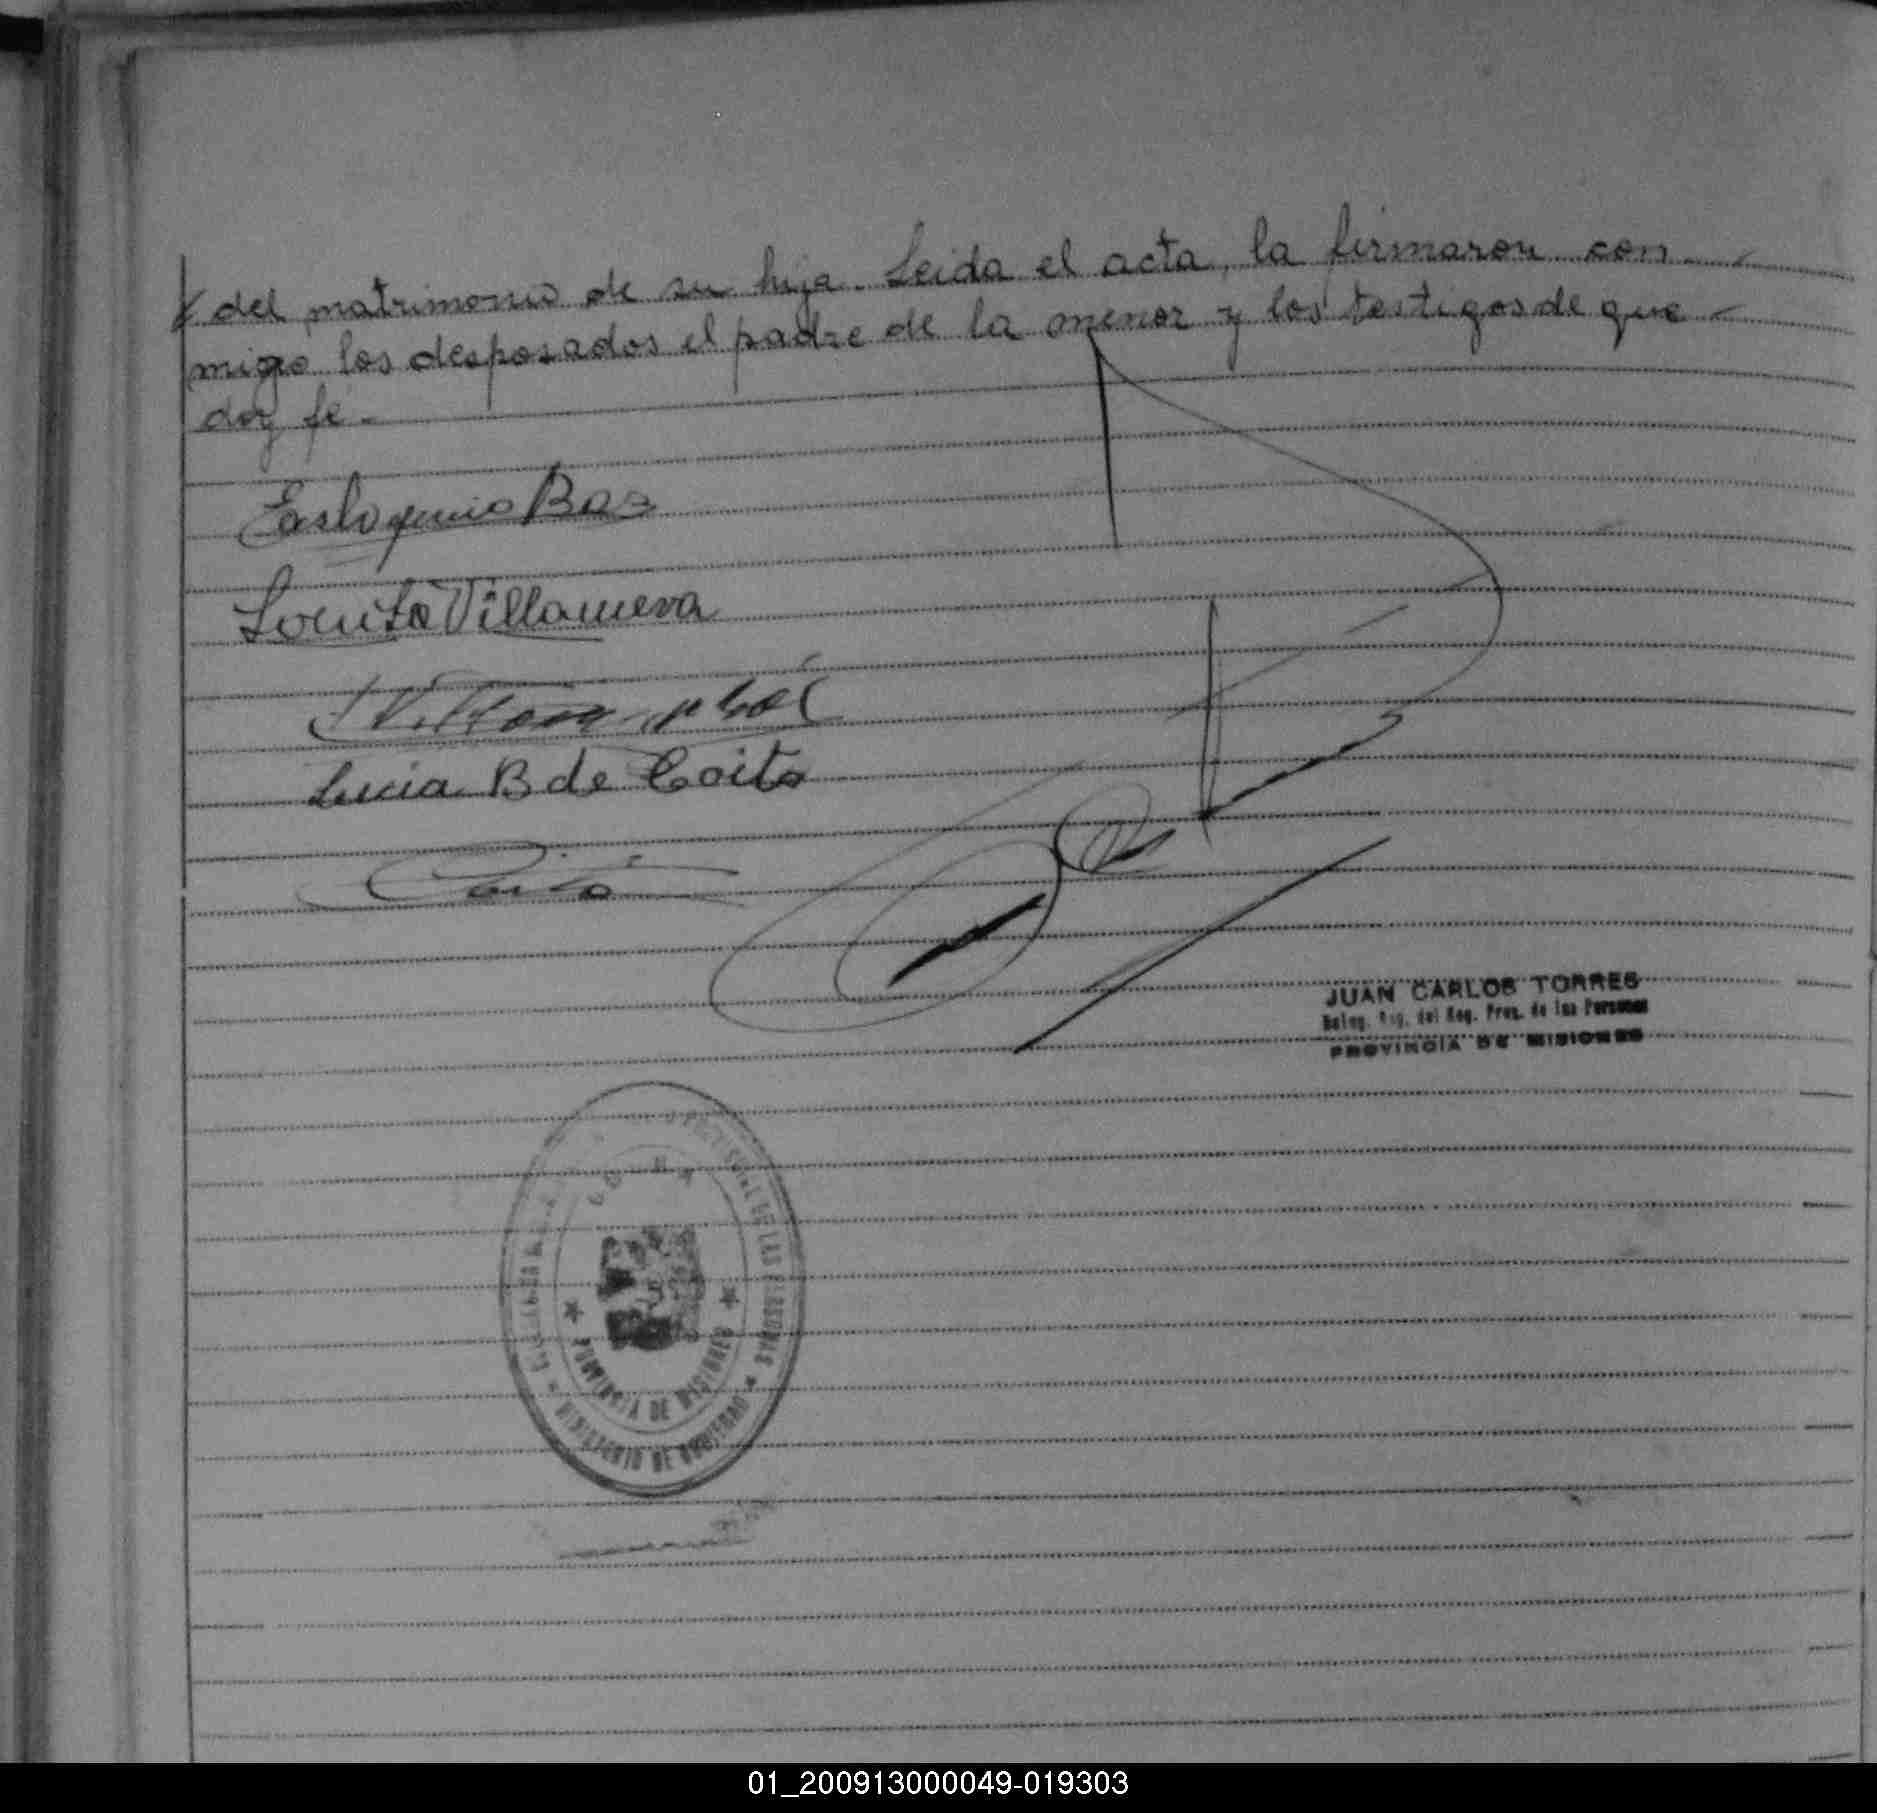 del matrimonio de su hija. Leida el acta, la firmaron con
migo los desposados el padre de la menor y los testigos de que
doy fé.
Baz
Villanueva
Lucia B de Coito
Coito
JUAN CARLOS TORRES
del Reg. Prov. de las Personas
PROVINCIA DE MISIONES
DE LAS PERSONAS
PROVINCIA DE MISIONES
MINISTERIO DE GOBIERNO
01_200913000049-019303